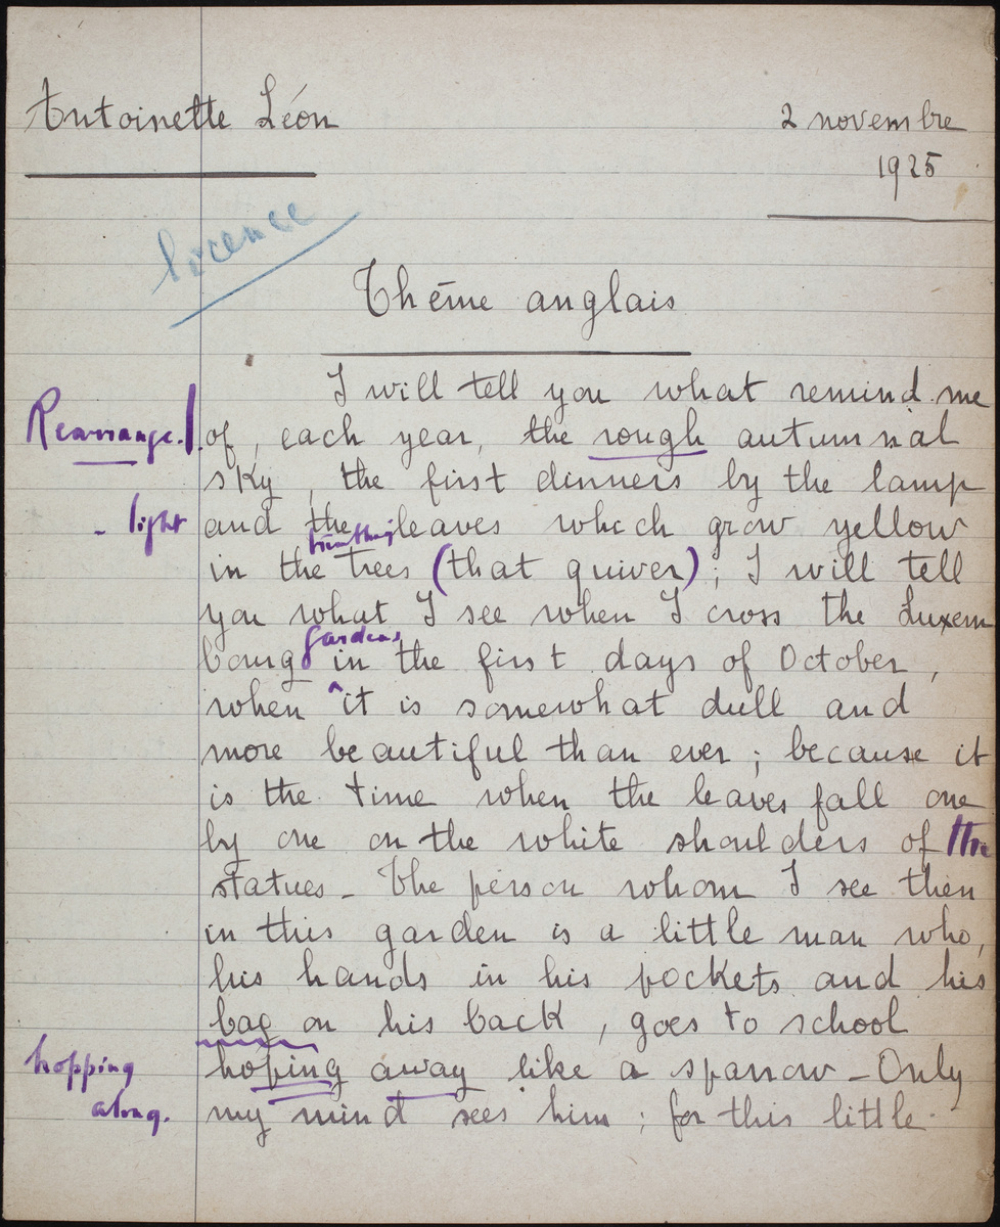 Antoinette Léon
2 novembre
1925
licence
Thème anglais
I will tell you what remind me
Rearrange. of, each year, the rough autumnal
sky, the first dinners by the lamp
- light and the leaves which grow yellow
trembling
in the trees (that quiver); I will tell
you what I see when I cross the Luxem
gardens
bourg in the first days of October,
when it is somewhat dull and
more beautiful than ever; because it
is the time when the leaves fall one
by one on the white shoulders of the
statues - The person whom I see then
in this garden is a little man who,
his hands in his pockets and his
bag on his back, goes to school
hopping hoping away like a sparrow - Only
along. my mind sees him; for this little